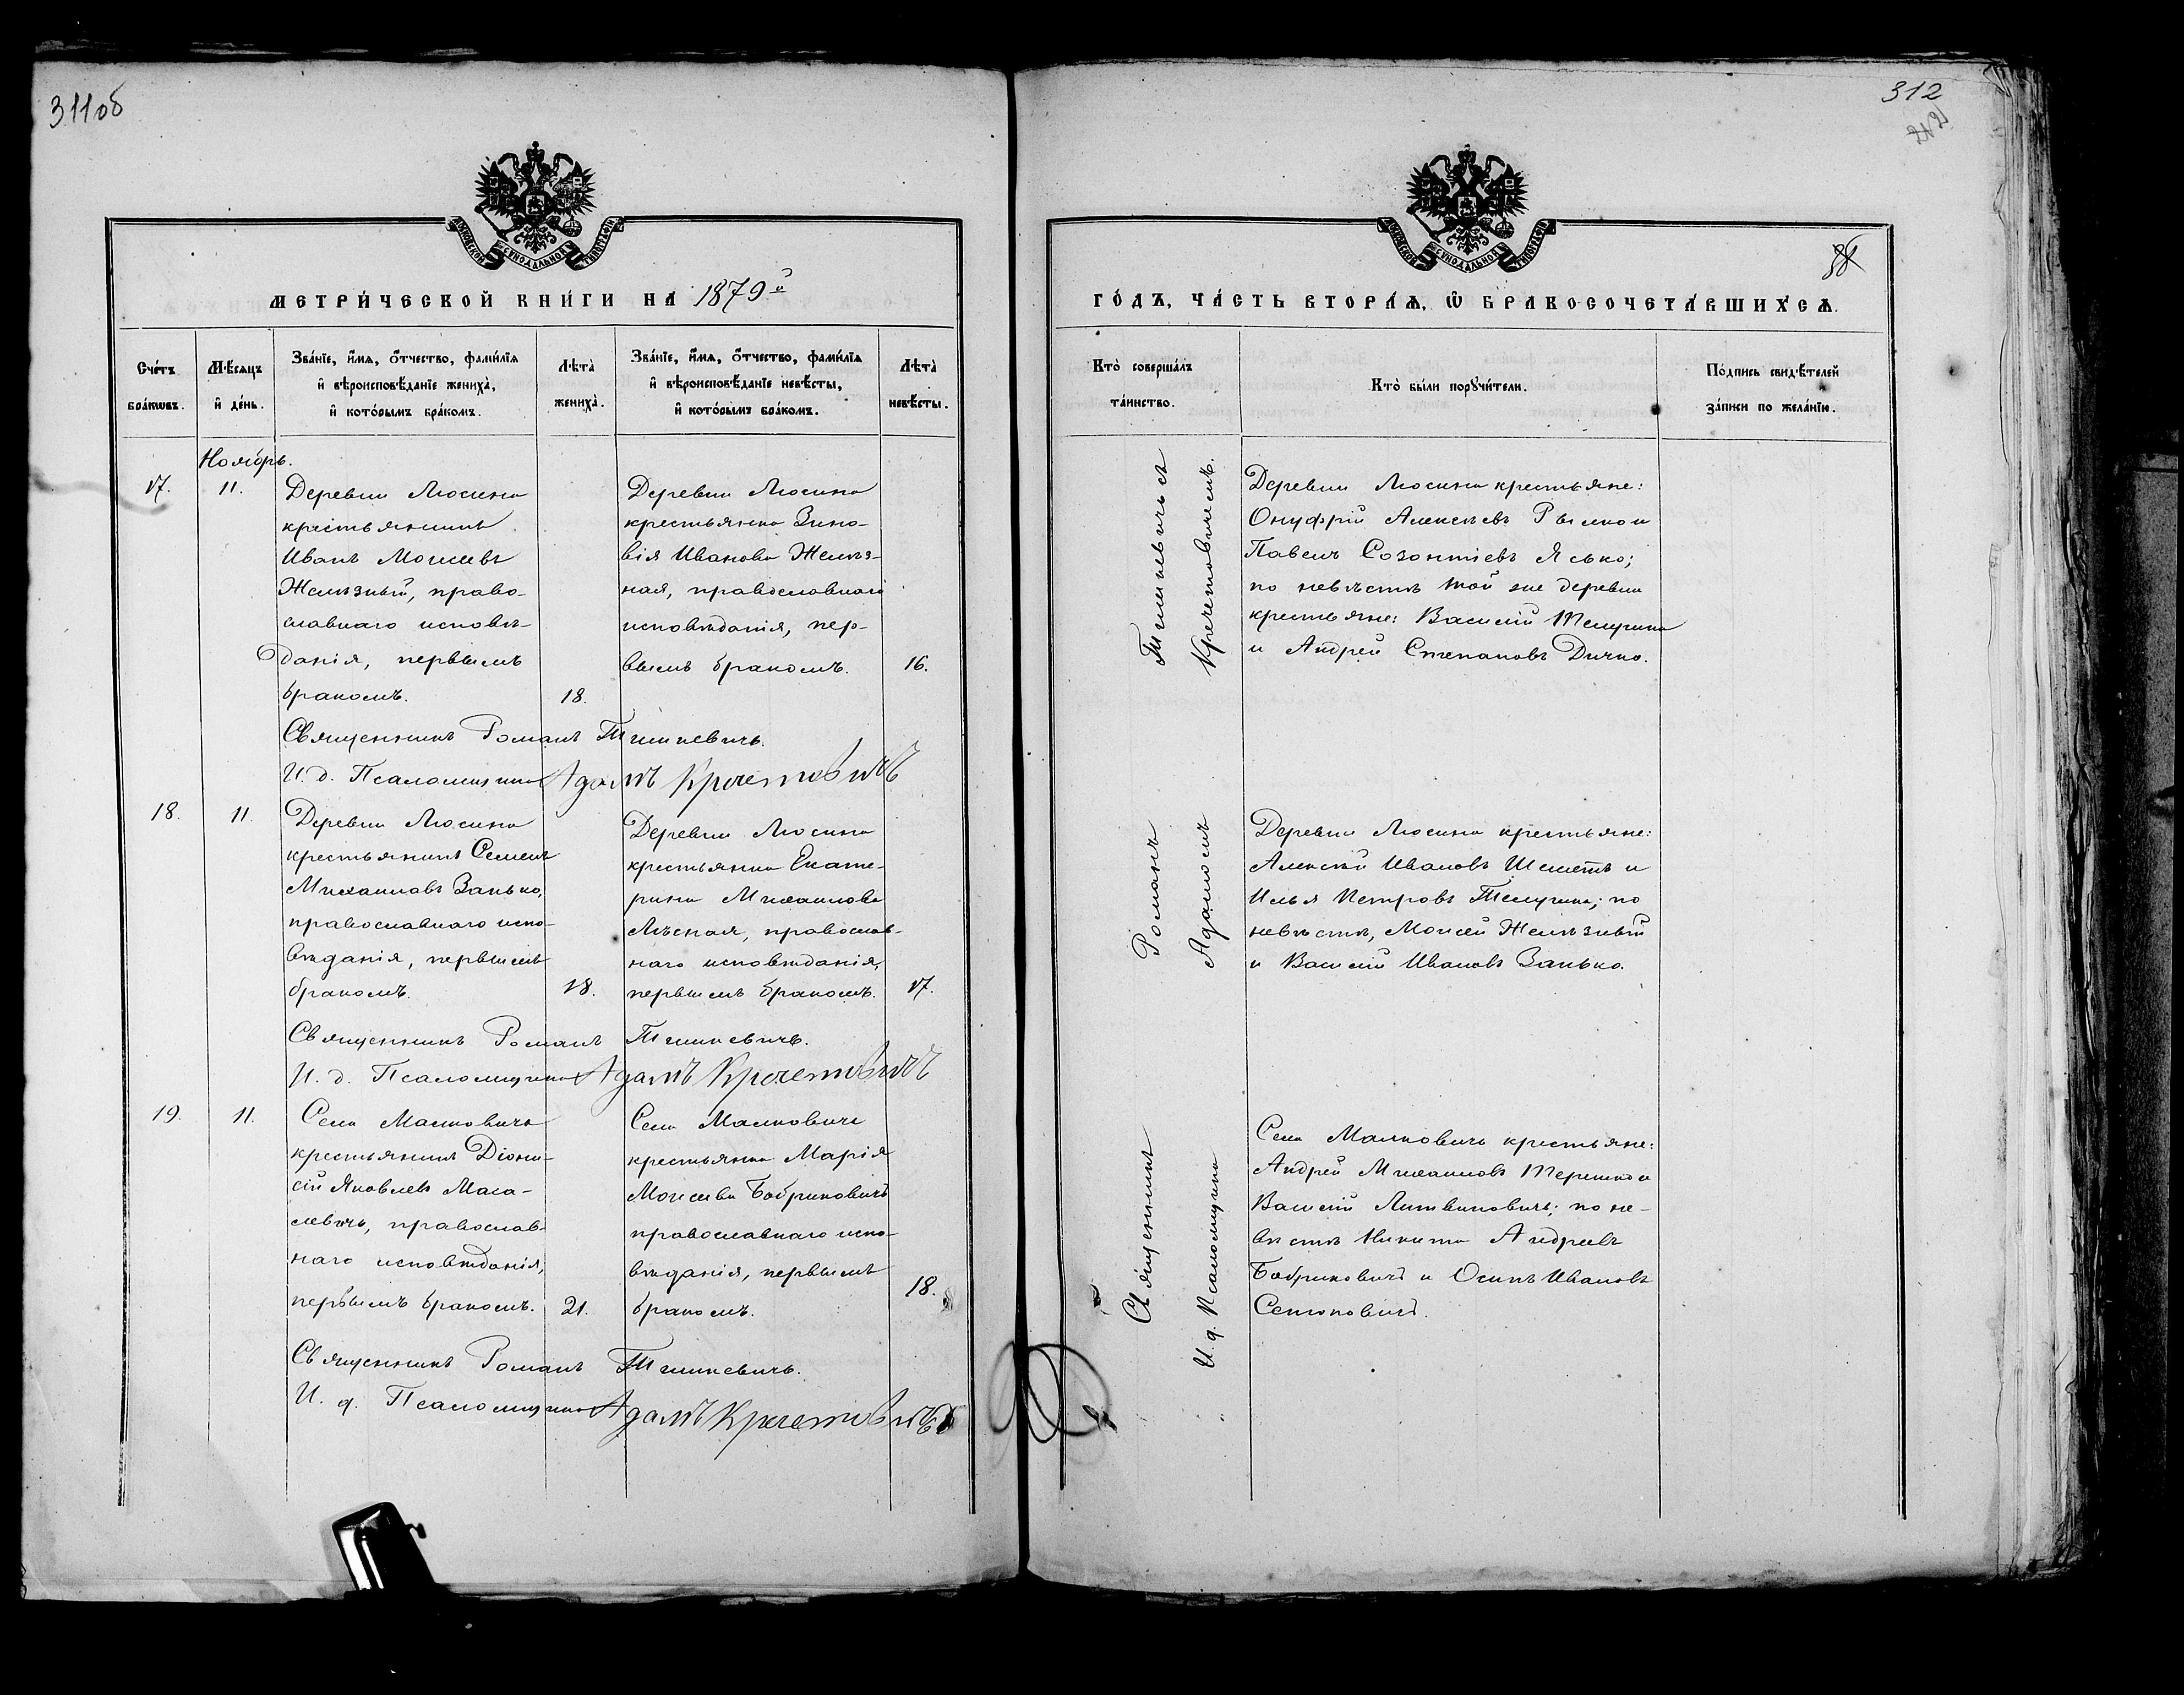 311об
312
МОСКОВСКОЙ СѴНОДАЛЬНОЙ ТИПОГРАФІИ
МЕТРИ́ЧЕСКОЙ КНИ́ГИ НА 1879й
Сче́тъ бра́кѡвъ.
Мѣ́сяцъ и҆ де́нь.
Зва́нїе, и҆́мѧ, ѻ҆́тчество, фами́лїѧ
и҆ вѣроисповѣ́данїе жениха̀,
и҆ кото́рымъ бра́комъ.
Лѣ́та̀ жениха̀.
Зва́нїе, и҆́мѧ, ѻ҆́тчество, фами́лїѧ
и҆ вѣроисповѣ́данїе невѣ́сты,
и҆ кото́рымъ бра́комъ.
Лѣ́та̀ невѣ́сты.
Ноябрь.
17.
11.
Деревни Люсина
крестьянинъ
Иванъ Моисеевъ
Желѣзный, право-
славнаго исповѣ-
данія, первымъ
бракомъ.
18.
Деревни Люсина
крестьянка Зино-
вія Иванова Желѣз-
ная, православнаго
исповѣданія, пер-
вымъ бракомъ.
16.
Священникъ Романъ Тишкевичъ.
И. д. Псаломщика Адамъ Кречетовичъ
18.
11.
Деревни Люсина
крестьянинъ Семенъ
Михаиловъ Занько,
православнаго испо-
вѣданія, первымъ
бракомъ.
18.
Деревни Люсина
крестьянка Екате-
рина Михаилова
Лѣсная, православ-
наго исповѣданія,
первымъ бракомъ.
17.
Священникъ Романъ Тишкевичъ.
И. д. Псаломщика Адамъ Кречетовичъ
19.
11.
Села Малковичъ
крестьянинъ Діони-
сій Яковлевъ Маса-
левичъ, православ-
наго исповѣданія,
первымъ бракомъ.
21.
Села Малковичъ
крестьянка Марія
Моисеева Бобриковичъ
православнаго испо-
вѣданія, первымъ
бракомъ.
18.
Священникъ Романъ Тишкевичъ.
И. д. Псаломщика Адамъ Кречетовичъ
МОСКОВСКОЙ СѴНОДАЛЬНОЙ ТИПОГРАФІИ
ГО́ДЪ, ЧА́СТЬ ВТОРА́Ѧ, Ѡ҆ БРАКОСОЧЕТА́ВШИХСѦ.
Кто̀ соверша́лъ
та́инство.
Кто̀ бы́ли порꙋчи́тели.
По́дпись свидѣ́телей
за́писи по жела́нїю.
Священникъ Романъ Тишкевичъ съ
И. д. Псаломщика Адамомъ Кречетовичемъ.
Деревни Люсина крестьяне:
Онуфрій Алексѣевъ Рылко и
Павелъ Созонтіевъ Ясько;
по невѣстѣ той же деревни
крестьяне: Василій Телушка
и Андрей Степановъ Дичко.
Деревни Люсина крестьяне:
Алексѣй Ивановъ Шеметъ и
Илья Петровъ Телушка; по
невѣстѣ, Моисей Желѣзный
и Василій Ивановъ Занько.
Села Малковичъ крестьяне:
Андрей Михаиловъ Терешко и
Василій Литвиновичъ; по не-
вѣстѣ Никита Андреевъ
Бобриковичъ и Осипъ Ивановъ
Сенюковичъ.